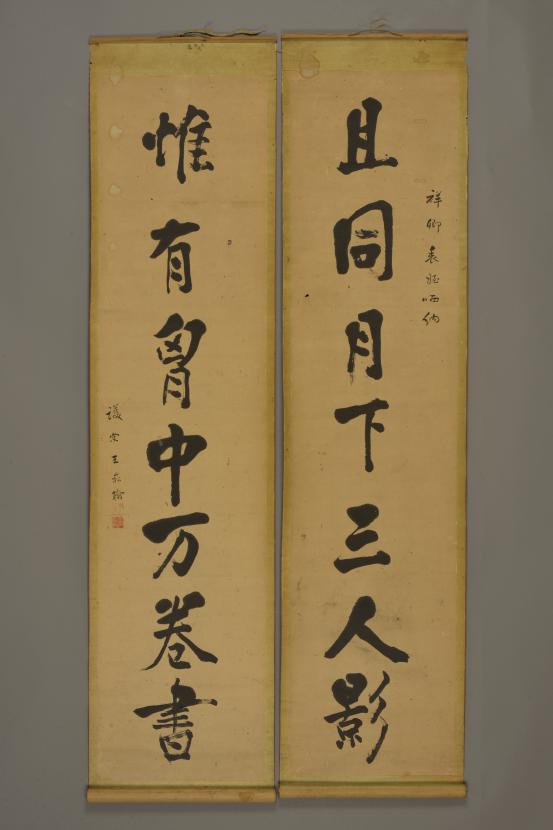 祥卿表姪哂納
且同月下三人影
惟有胷中万卷書
王